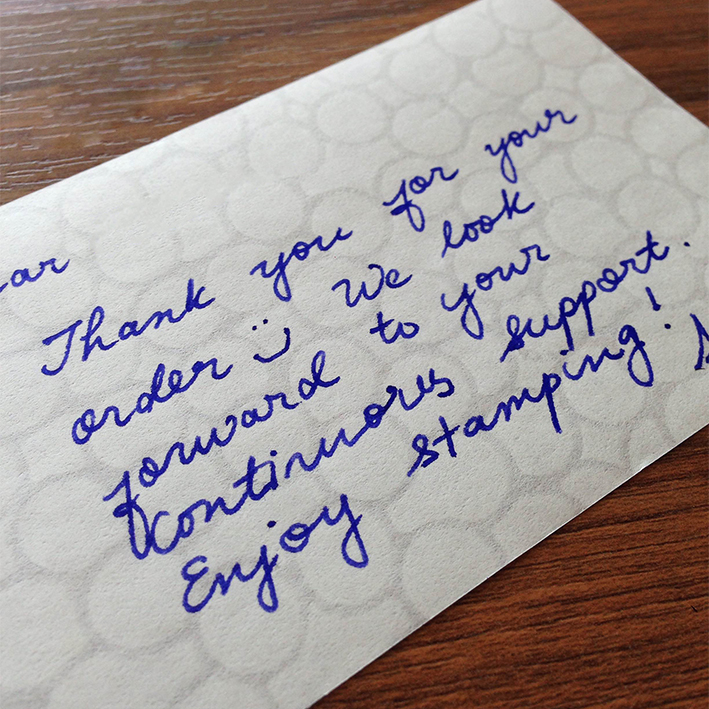 ar
Thank you for your
order :) We look
forward to your
continuous support.
Enjoy stamping!